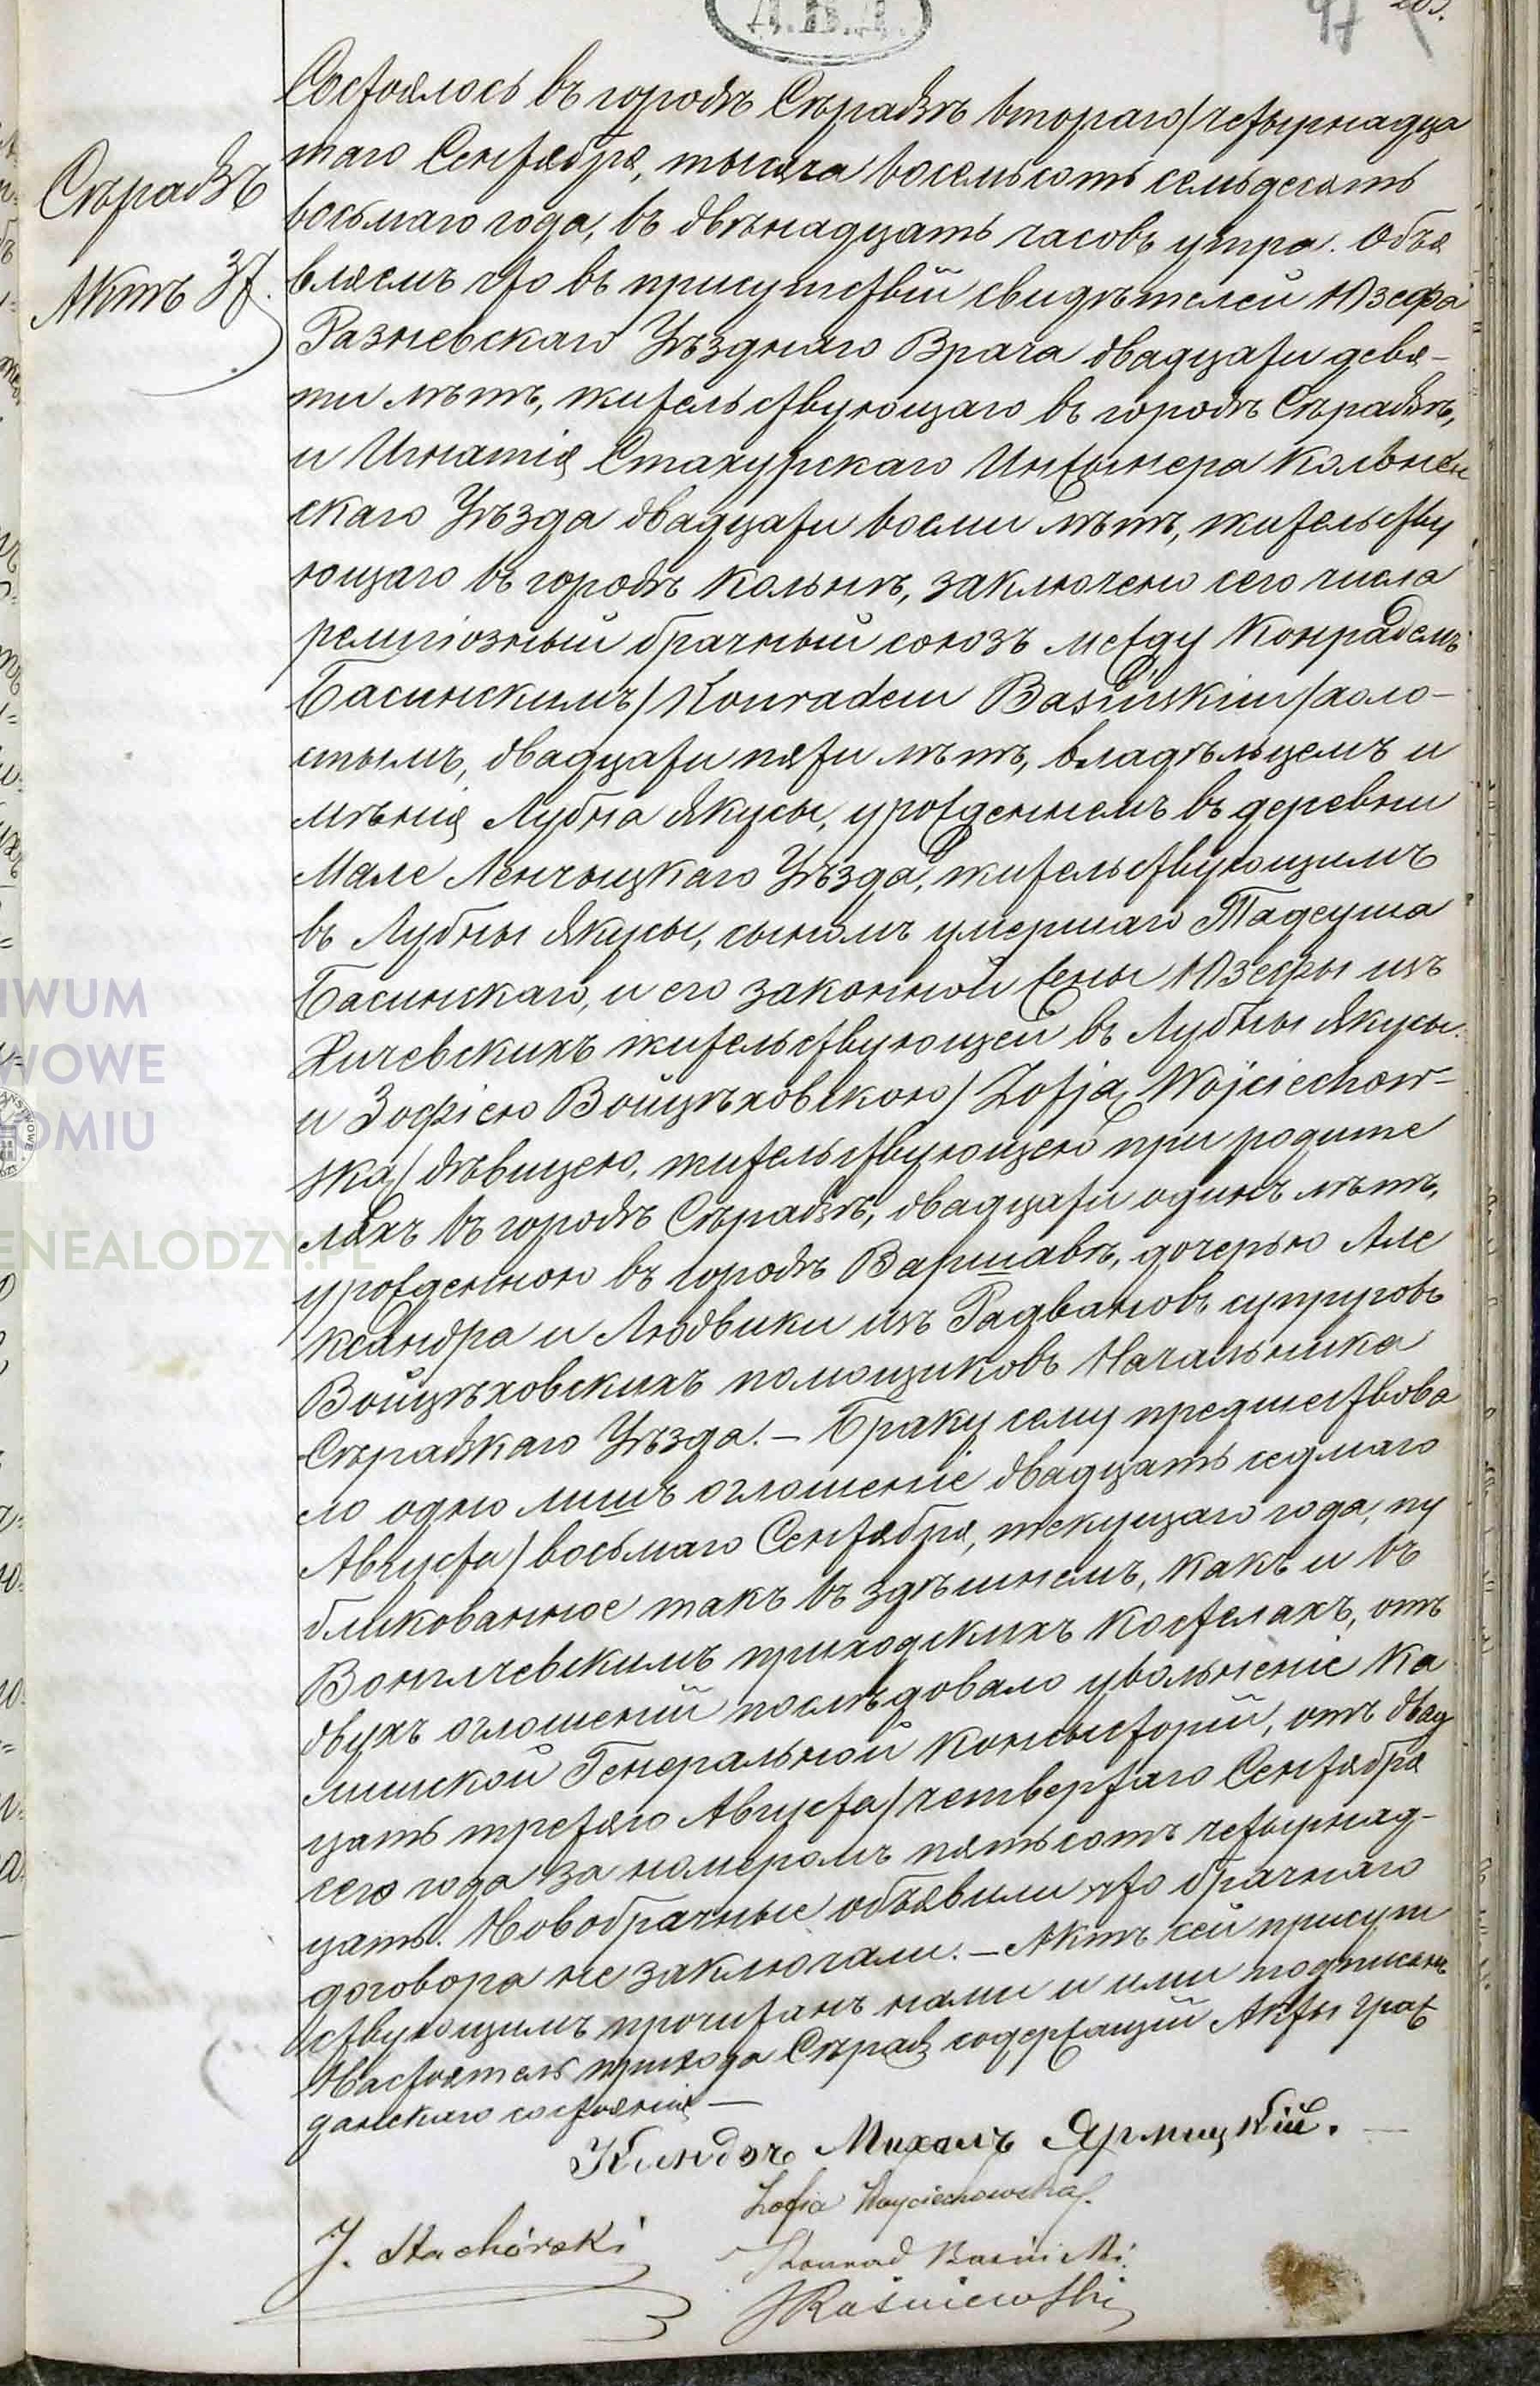 А.В.Д.
47
203.
Сѣрадзъ
Актъ 37.
Состоялось въ городѣ Сѣрадзѣ втораго/четырнадца
таго Сентября, тысяча восемьсотъ семьдесятъ
восьмаго года, въ двѣнадцать часовъ утра. Объя
вляемъ что въ присутствіи свидѣтелей Юзефа
Разневскаго Уѣзднаго Врача двадцати девя-
ти лѣтъ, жительствующаго въ городѣ Сѣрадзѣ,
и Игнатія Стахурскаго Инженера Кольнен
скаго Уѣзда двадцати восми лѣтъ, жительству
ющаго въ городѣ Кольнѣ, заключенъ сего числа
религіозный брачный союзъ между Конрадемъ
Басинскимъ/Konradem Basińskim/холо-
стымъ, двадцати пяти лѣтъ, владѣльцемъ и
мѣнія Лубна Якусы, урожденнемъ въ деревни
Мале Ленчыцкаго Уѣзда, жительствующимъ
въ Лубны Якусы, сыномъ умершаго Тадеуша
Басинскаго, и его законной жены Юзефы изъ
Хичевскихъ жительствующей въ Лубны Якусы.
и Зофіею Войцѣховскою/Zofją Wojciechow-
ską/ дѣвицею, жительствующею при родите
ляхъ въ городѣ Сѣрадзѣ, двадцати одинъ лѣтъ,
урожденною въ городѣ Варшавѣ, дочерью Але
ксандра и Людвики изъ Радвановъ супруговъ
Войцѣховскихъ помощиковъ Начальника
Сѣрадзкаго Уѣзда. – Браку сему предшествова
ло одно лишь оглошеніе двадцать седмаго
Августа/восьмаго Сентября, текущаго года, пу
бликованное такъ въ здѣшнемъ, какъ и въ
Вонглчевскимъ приходскихъ костелахъ, отъ
двухъ оглошеній послѣдовало увольненіе Ка
лишской Генеральной Консысторіи, отъ двад
цать третяго Августа/четвертаго Сентября
сего года за номеромъ пятьсотъ четырнад-
цать. Новобрачные объявили что брачнаго
договора не заключали. – Актъ сей присут
ствующимъ прочитанъ нами и ими подписанъ
Настоятель прихода Сѣрадз содержащій Акты граж
данскаго состоянія —
Ксендзъ Михалъ Ярмицкій. —
Zofia Woyciechowska
J. Stachórski
Konrad Basiński
J Raśniewski